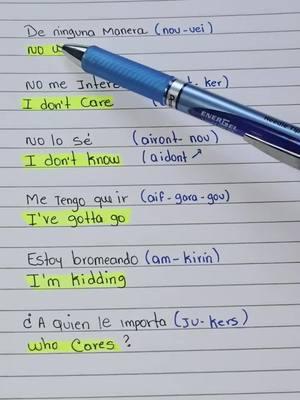 De ninguna Manera (nou-vei)
NO
NO me Intere - ker)
I don't Care
NO lo sé (airont-nou)
I don't know (aidont ↗
Me Tengo que ir (aif-gara-gou)
I've gotta go
Estoy bromeando (am-kirin)
I'm kidding
¿A quien le importa (Ju-kers)
who Cares ?
ENERGEL